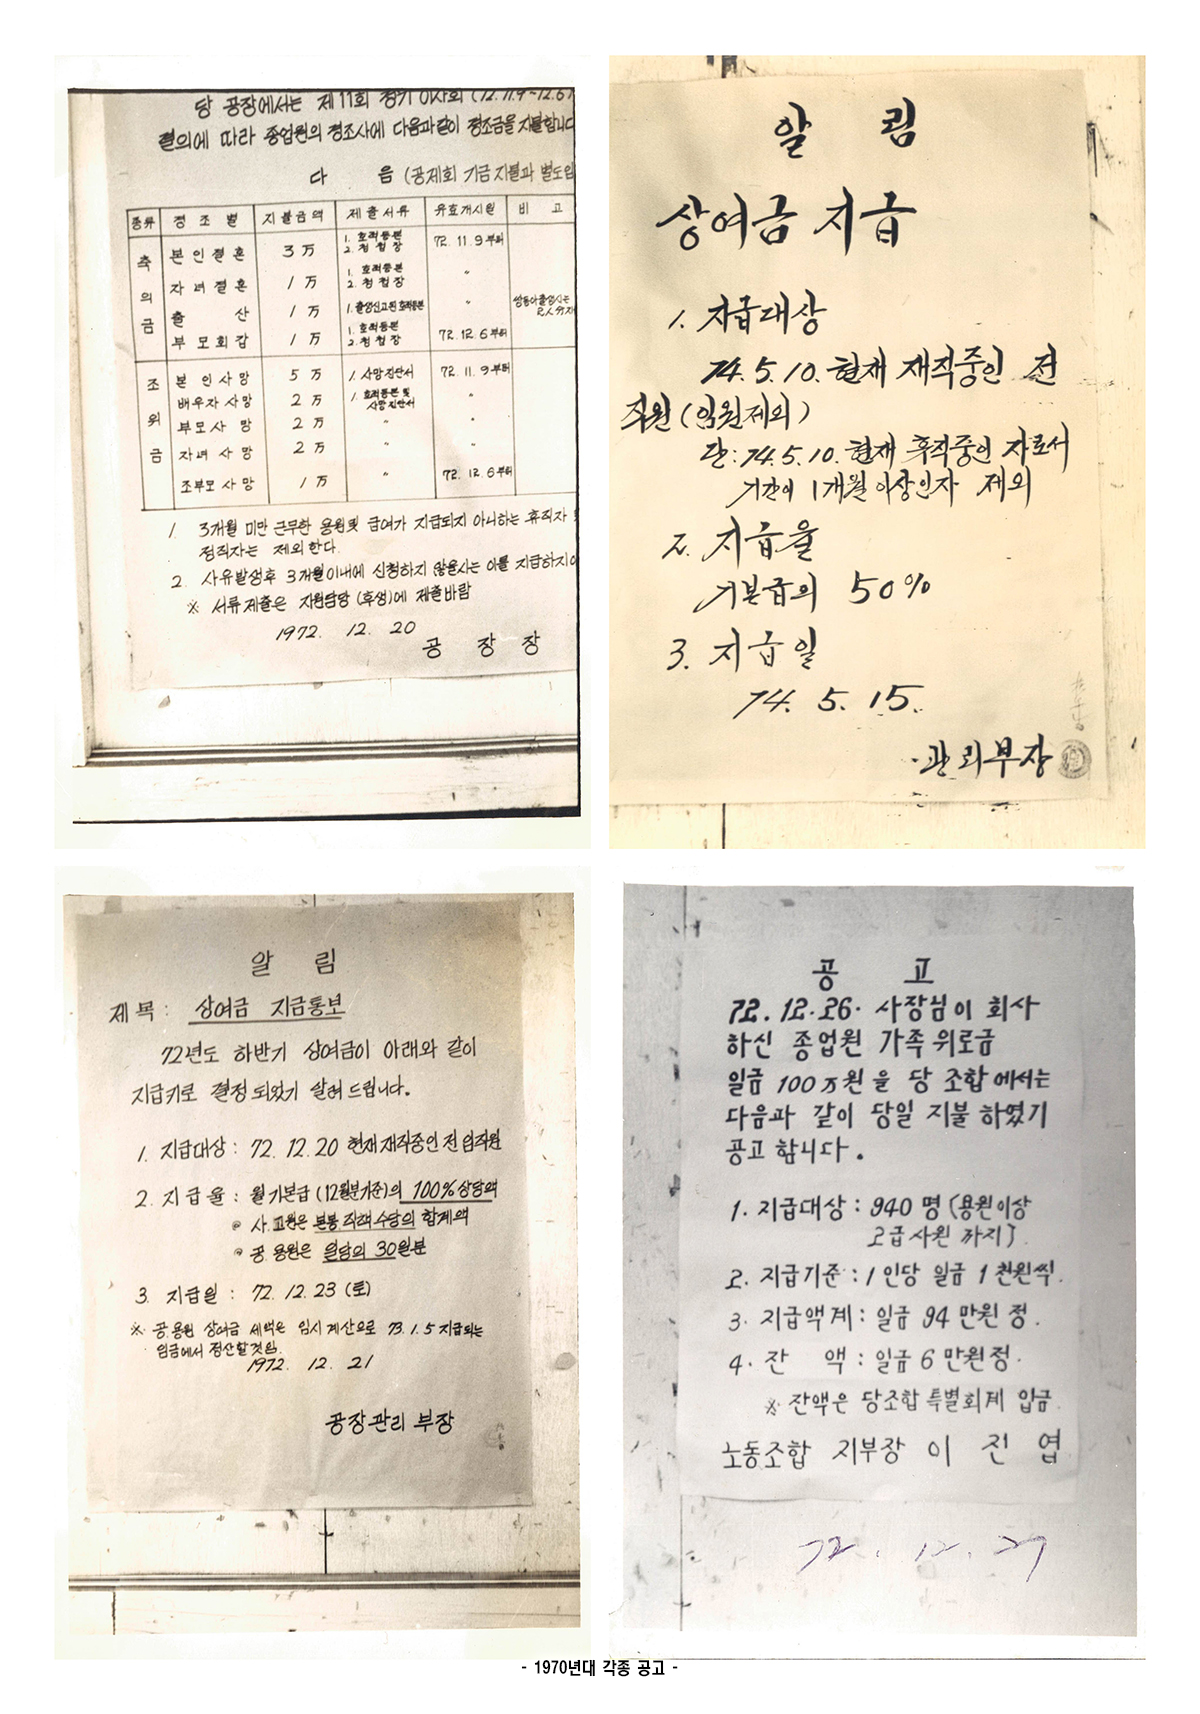 당 공장에서는 제11회 정기 이사회 (72.11.9~12.6)
결의에 따라 종업원의 경조사에 다음과같이 경조금을 지불합니다
다 음 (공제회 기금 지불과 별도임
종류 경조별 지불금액 제출서류 유효개시월 비 고
축의금
본인결혼 3万 1. 호적등본 2. 청첩장 72.11.9부터
자녀결혼 1万 1. 호적등본 2. 청첩장 〃
출 산 1万 1. 출생신고된 호적등본 〃 쌍둥아출생시는 2人分
부모회갑 1万 1. 호적등본 2. 청첩장 72.12.6부터
조위금
본인사망 5万 1. 사망진단서 72.11.9부터
배우자사망 2万 1. 호적등본 및 사망진단서 〃
부모사망 2万 〃 〃
자녀사망 2万 〃 〃
조부모사망 1万 〃 72.12.6부터
1. 3개월 미만 근무한 용원및 급여가 지급되지 아니하는 휴직자
정직자는 제외한다.
2. 사유발생후 3개월이내에 신청하지 않을시는 이를 지급하지
※ 서류제출은 자원담당 (후생)에 제출바람
1972. 12. 20
공 장 장
알 림
상여금 지급
1. 지급대상
74.5.10. 현재 재직중인 전
직원 (임원제외)
단: 74.5.10. 현재 휴직중인 자로서
기간이 1개월 이상인자 제외
2. 지급율
기본급의 50%
3. 지급일
74. 5. 15.
관리부장
알 림
제목: 상여금 지급통보
72년도 하반기 상여금이 아래와 같이
지급키로 결정 되었기 알려 드립니다.
1. 지급대상: 72.12.20 현재 재직중인 전 임직원
2. 지급율: 월기본급 (12월분기준)의 100% 상당액
◉ 사.고원은 본봉 직책수당의 합계액
◉ 공.용원은 일당의 30일분
3. 지급일: 72.12.23 (토)
※ 공.용원 상여금 세액은 임시계산으로 73.1.5 지급되는
임금에서 정산할것임.
1972. 12. 21
공장관리 부장
공 고
72.12.26. 사장님이 회사
하신 종업원 가족위로금
일금 100万원을 당 조합에서는
다음과 같이 당일 지불 하였기
공고 합니다.
1. 지급대상: 940명 (용원이상
2급사원 까지)
2. 지급기준: 1인당 일금 1천원씩.
3. 지급액계: 일금 94만원 정.
4. 잔 액: 일금 6만원정.
※ 잔액은 당조합 특별회계 입금
노동조합 지부장 이 진 엽
72. 12. 27
- 1970년대 각종 공고 -